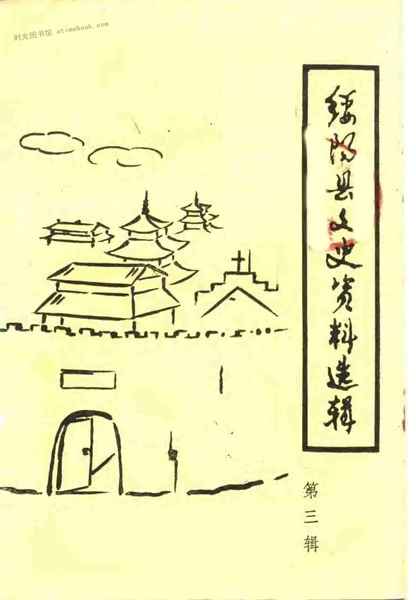 时光图书馆 atimebook.com
绥阳县文史资料选辑
第三辑